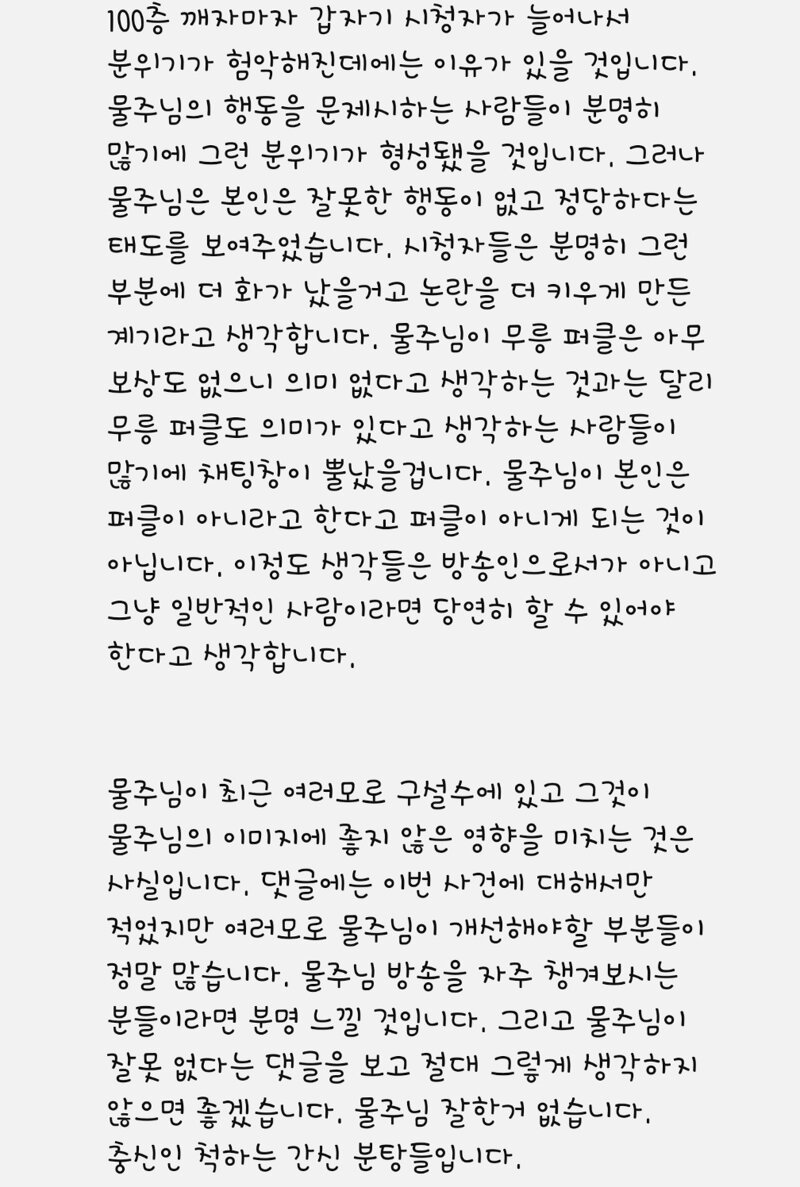 100층 깨자마자 갑자기 시청자가 늘어나서
분위기가 험악해진데에는 이유가 있을 것입니다.
물주님의 행동을 문제시하는 사람들이 분명히
많기에 그런 분위기가 형성됐을 것입니다. 그러나
물주님은 본인은 잘못한 행동이 없고 정당하다는
태도를 보여주었습니다. 시청자들은 분명히 그런
부분에 더 화가 났을거고 논란을 더 키우게 만든
계기라고 생각합니다. 물주님이 무릉 퍼클은 아무
보상도 없으니 의미 없다고 생각하는 것과는 달리
무릉 퍼클도 의미가 있다고 생각하는 사람들이
많기에 채팅창이 뿔났을겁니다. 물주님이 본인은
퍼클이 아니라고 한다고 퍼클이 아니게 되는 것이
아닙니다. 이정도 생각들은 방송인으로서가 아니고
그냥 일반적인 사람이라면 당연히 할 수 있어야
한다고 생각합니다.
물주님이 최근 여러모로 구설수에 있고 그것이
물주님의 이미지에 좋지 않은 영향을 미치는 것은
사실입니다. 댓글에는 이번 사건에 대해서만
적었지만 여러모로 물주님이 개선해야할 부분들이
정말 많습니다. 물주님 방송을 자주 챙겨보시는
분들이라면 분명 느낄 것입니다. 그리고 물주님이
잘못 없다는 댓글을 보고 절대 그렇게 생각하지
않으면 좋겠습니다. 물주님 잘한거 없습니다.
충신인 척하는 간신 분탕들입니다.